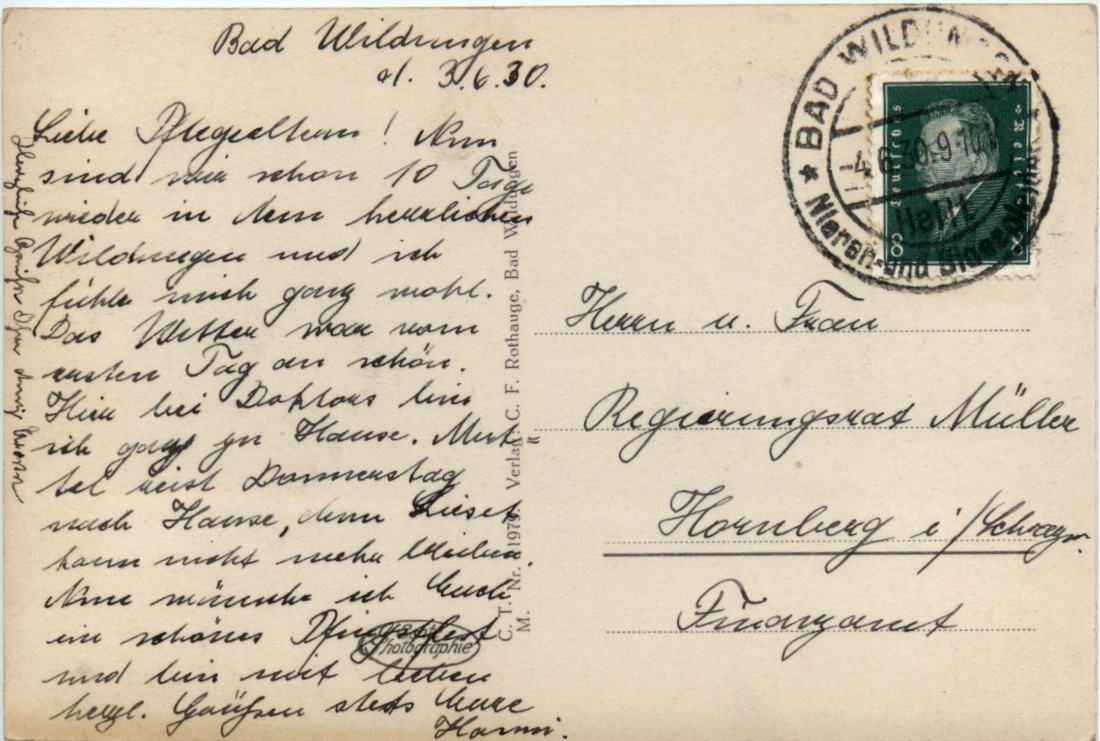 Bad Wildungen
d. 3.6.30.
Liebe Pflegeeltern! Nun
sind wir schon 10 Tage
wieder in dem herrlichen
Wildungen und ich
fühle mich ganz wohl.
Das Wetter war vom
ersten Tag an schön.
Hier bei Doktors bin
ich ganz zu Hause. Mut-
tel reist Donnerstag
nach Hause, denn Liesel
kann nicht mehr bleiben.
Nun wünsche ich Euch
ein schönes Pfingstfest
und bin mit lieben
herzl. Grüßen stets Eure
Hanni.
Herzliche Grüße
C. T. Nr. 1979. Verlag: C. F. Rothauge, Bad Wildungen
M.
Photographie
★ BAD WILDUNGEN
-4.6.30.9-10
Heilt
Nieren- und Blasenleiden
Deutsches Reich
8 8
Herrn u. Frau
Regierungsrat Müller
Hornberg i/Schwarzw.
Finanzamt